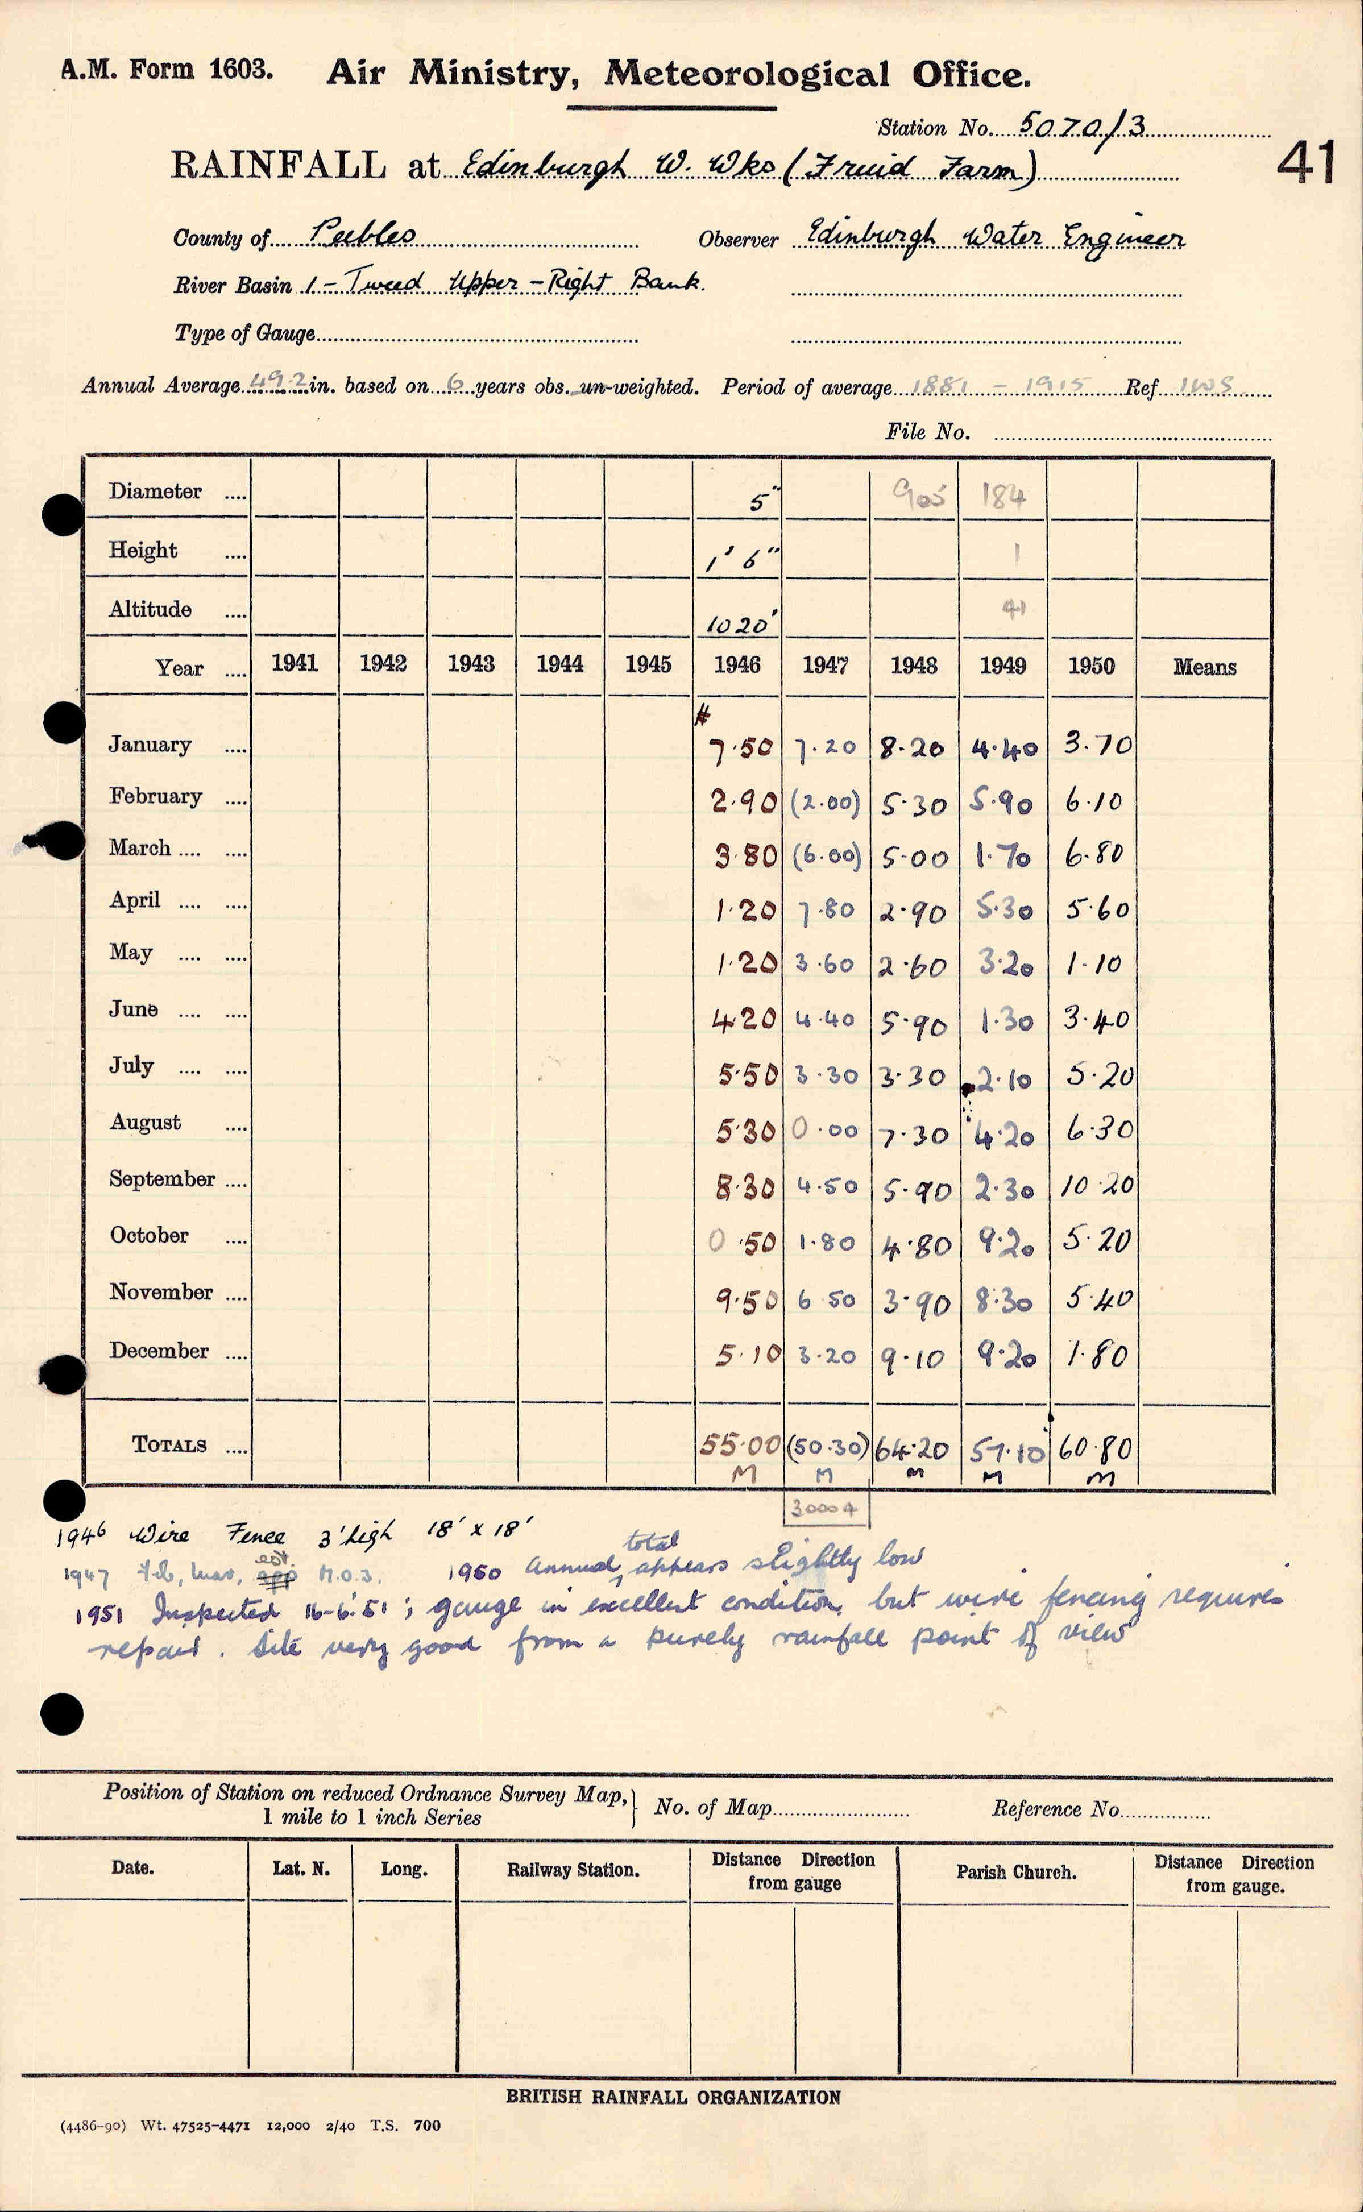 A.M. Form 1603. Air Ministry, Meteorological Office.
Station No. 5070/3
41
RAINFALL at Edinburgh W. Wks (Fruid Farm)
County of Peebles Observer Edinburgh Water Engineer
River Basin 1 - Tweed Upper - Right Bank.
Type of Gauge
Annual Average 49.2 in. based on 6 years obs. un-weighted. Period of average 1881 - 1915 Ref IWS
File No.
Diameter .... 5" 905 184
Height .... 1' 6" 1
Altitude .... 1020' 41
Year .... 1941 1942 1943 1944 1945 1946 1947 1948 1949 1950 Means
#
January .... 7.50 7.20 8.20 4.40 3.70
February .... 2.90 (2.00) 5.30 5.90 6.10
March .... .... 3.80 (6.00) 5.00 1.70 6.80
April .... .... 1.20 7.80 2.90 5.30 5.60
May .... .... 1.20 3.60 2.60 3.20 1.10
June .... .... 4.20 4.40 5.90 1.30 3.40
July .... .... 5.50 3.30 3.30 2.10 5.20
August .... 5.30 0.00 7.30 4.20 6.30
September .... 8.30 4.50 5.90 2.30 10.20
October .... 0.50 1.80 4.80 9.20 5.20
November .... 9.50 6.50 3.90 8.30 5.40
December .... 5.10 3.20 9.10 9.20 1.80
TOTALS .... 55.00 (50.30) 64.20 57.10 60.80
M M M M M
30004
1946 Wire Fence 3' high 18' x 18'
1947 Feb, Mar, est. M.O.3. 1950 Annual total appears slightly low
1951 Inspected 16-6-51; gauge in excellent condition, but wire fencing requires
repair. Site very good from a purely rainfall point of view
Position of Station on reduced Ordnance Survey Map, 1 mile to 1 inch Series } No. of Map Reference No.
Date. Lat. N. Long. Railway Station. Distance Direction from gauge Parish Church. Distance Direction from gauge.
BRITISH RAINFALL ORGANIZATION
(4486-90) Wt. 47525-4471 12,000 2/40 T.S. 700